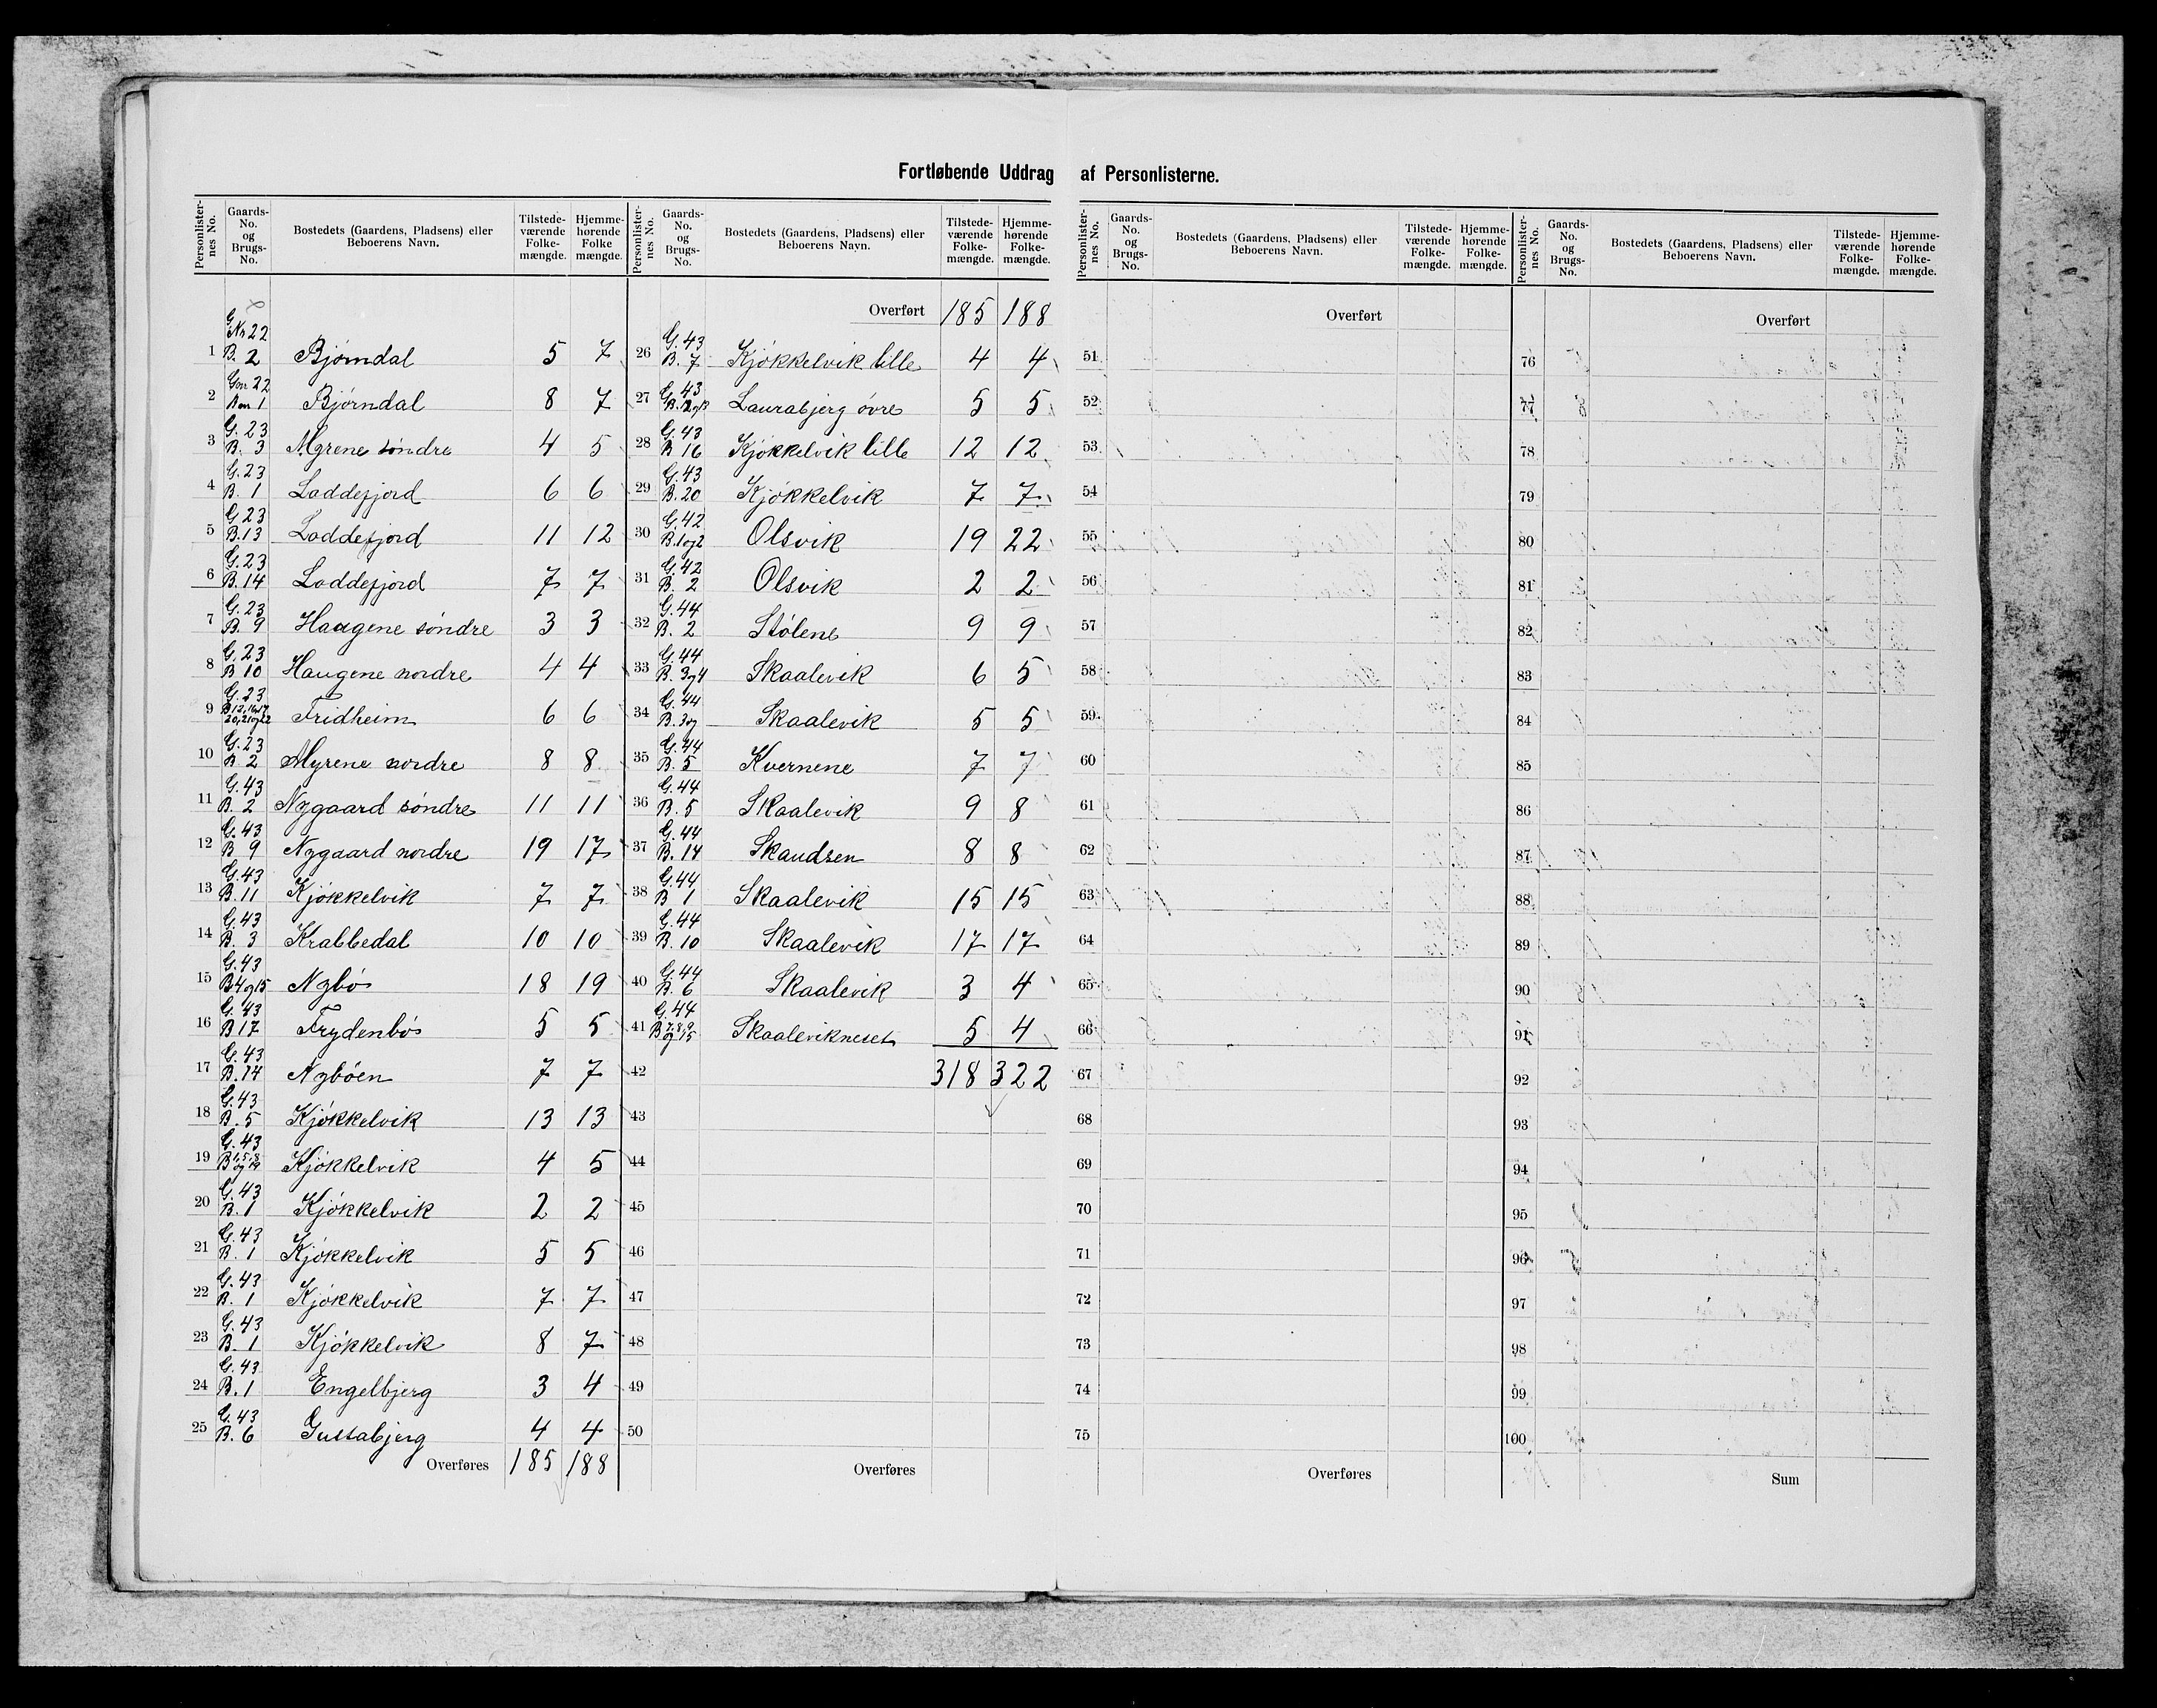 Fortløbende Uddrag af Personlisterne.
Personlister-nes No. | Gaards-No. og Brugs-No. | Bostedets (Gaardens, Pladsens) eller Beboerens Navn. | Tilstede-værende Folke-mængde. | Hjemme-hørende Folke mængde.
1 G. No 22 B. 2 Bjørndal 5 7
2 Gnr 22 Bnr 1 Bjørndal 8 7
3 G. 23 B. 3 Myrene søndre 4 5
4 G. 23 B. 1 Loddefjord 6 6
5 G. 23 B. 13 Loddefjord 11 12
6 G. 23 B. 14 Loddefjord 7 7
7 G. 23 B. 9 Haugene søndre 3 3
8 G. 23 B 10 Haugene nordre 4 4
9 G. 23 B 12, 16, 17 20, 21 og 22 Fridheim 6 6
10 G. 23 B. 2 Myrene nordre 8 8
11 G. 43 B. 2 Nygaard søndre 11 11
12 G. 43 B 9 Nygaard nordre 19 17
13 G. 43 B. 11 Kjøkkelvik 7 7
14 G. 43 B. 3 Krabbedal 10 10
15 G. 43 B 4 og 15 Nybø 18 19
16 G. 43 B 17 Frydenbø 5 5
17 G. 43 B. 14 Nybøen 7 7
18 G. 43 B. 5 Kjøkkelvik 13 13
19 G. 43 B 1, 5, 8 og 19 Kjøkkelvik 4 5
20 G. 43 B. 1 Kjøkkelvik 2 2
21 G. 43 B. 1 Kjøkkelvik 5 5
22 G. 43 B. 1 Kjøkkelvik 7 7
23 G. 43 B. 1 Kjøkkelvik 8 7
24 G. 43 B. 1 Engelbjerg 3 4
25 G. 43 B. 6 Gustabjerg 4 4
Overføres 185 188
Personlister-nes No. | Gaards-No. og Brugs-No. | Bostedets (Gaardens, Pladsens) eller Beboerens Navn. | Tilstede-værende Folke-mængde. | Hjemme-hørende Folke-mængde.
Overført 185 188
26 G. 43 B. 7 Kjøkkelvik lille 4 4
27 G. 43 B. 12 og 13 Laurabjerg øvre 5 5
28 G. 43 B 16 Kjøkkelvik lille 12 12
29 G. 43 B. 20 Kjøkkelvik 7 7
30 G. 42 B. 1 og 2 Olsvik 19 22
31 G. 42 B. 2 Olsvik 2 2
32 G. 44 B. 2 Stølene 9 9
33 G. 44 B. 3 og 4 Skaalevik 6 5
34 G. 44 B. 3 og Skaalevik 5 5
35 G. 44 B. 5 Kvernene 7 7
36 G. 44 B. 5 Skaalevik 9 8
37 G. 44 B. 14 Skaudsen 8 8
38 G. 44 B 1 Skaalevik 15 15
39 G. 44 B. 10 Skaalevik 17 17
40 G. 44 B. 6 Skaalevik 3 4
41 G. 44 B 7, 8, 9 og 15 Skaalevikneset 5 4
42 318 322
43
44
45
46
47
48
49
50
Overføres
Personlister-nes No. | Gaards-No. og Brugs-No. | Bostedets (Gaardens, Pladsens) eller Beboerens Navn. | Tilstede-værende Folke-mængde. | Hjemme-hørende Folke-mængde.
Overført
51
52
53
54
55
56
57
58
59
60
61
62
63
64
65
66
67
68
69
70
71
72
73
74
75
Overføres
Personlister-nes No. | Gaards-No. og Brugs-No. | Bostedets (Gaardens, Pladsens) eller Beboerens Navn. | Tilstede-værende Folke-mængde. | Hjemme-hørende Folke-mængde.
Overført
76
77
78
79
80
81
82
83
84
85
86
87
88
89
90
91
92
93
94
95
96
97
98
99
100
Sum